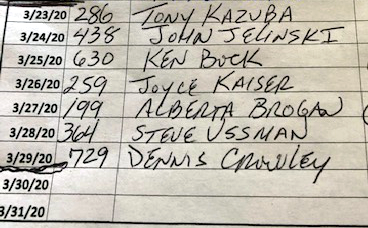 3/23/20 286 TONY KAZUBA
3/24/20 438 JOHN JELINSKI
3/25/20 630 KEN BUCK
3/26/20 259 JOYCE KAISER
3/27/20 199 ALBERTA BROGAN
3/28/20 364 STEVE USSMAN
3/29/20 729 DENNIS CROWLEY
3/30/20
3/31/20